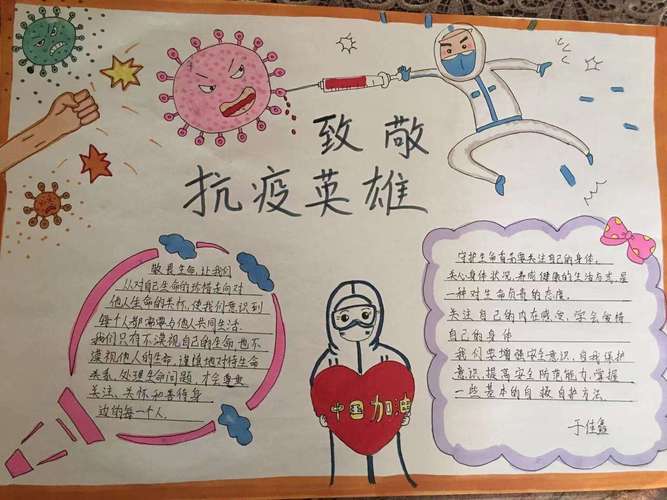 致敬
抗疫英雄
敬畏生命,让我们
从对自己生命的珍惜走向对
他人生命的关怀,使我们意识到
每个人都需要与他人共同生活.
我们只有不漠视自己的生命,也不
漠视他人的生命,谨慎地对待生命
关系,处理生命问题,才会
关注、关怀和善待身
边的每一个人.
守护生命首先要关注自己的身体,
关心身体状况,养成健康的生活方式,是
一种对生命负责的态度.
关注自己的内在感受,学会爱惜
自己的身体
我们要增强安全意识,自我保护
意识,提高安全防范能力,掌握
一些基本的自救自护方法.
中国加油
于佳鑫